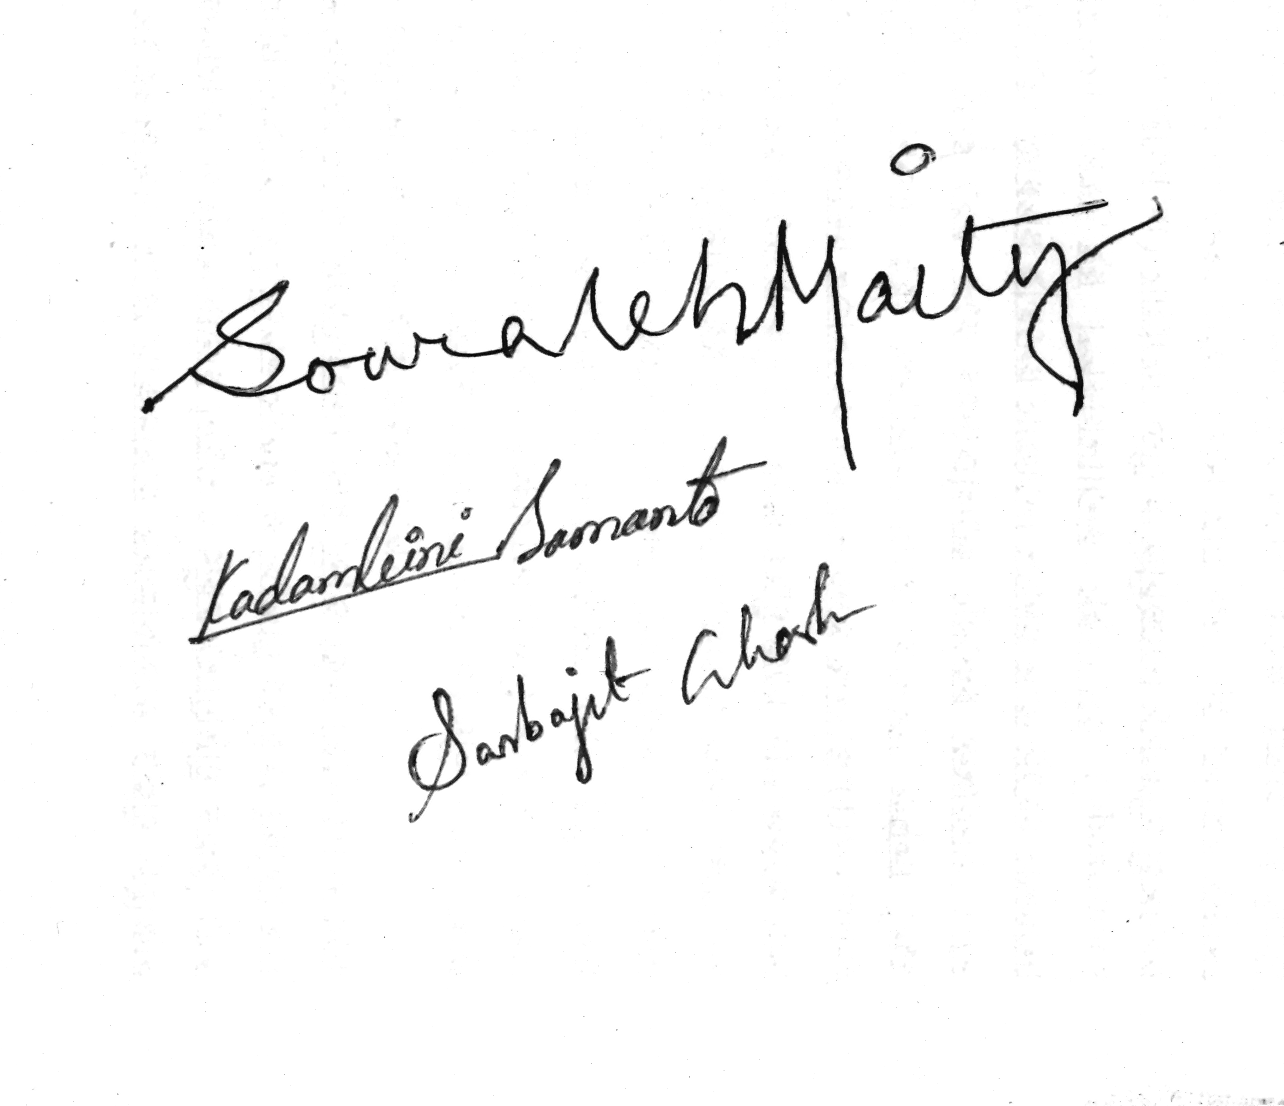 Sourabh Maity
Kadambini Samanta
Sarbajit Ghosh